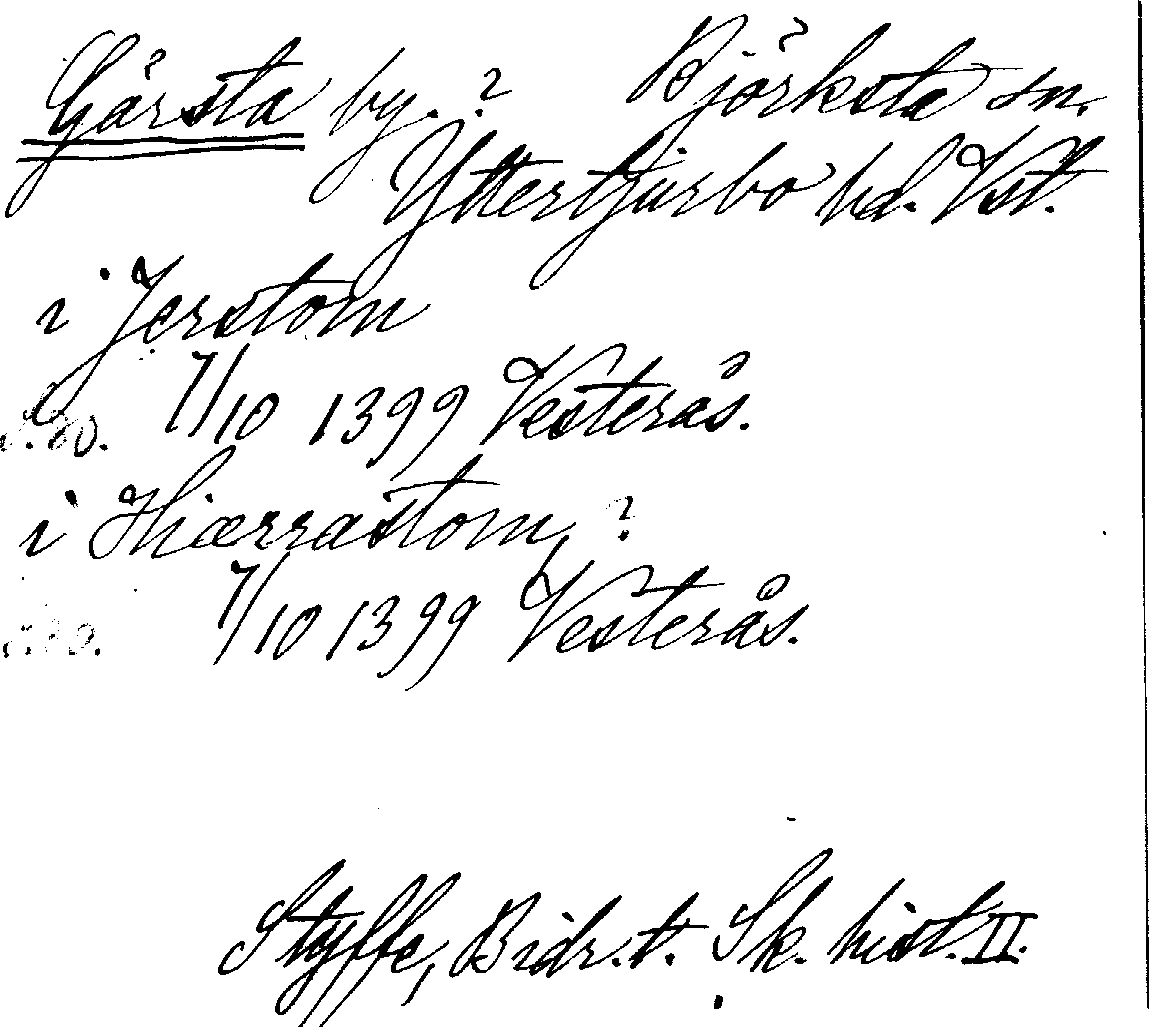 Gårsta by. ? Björksta sn.
Yttertjurbo hd. Vst.
i Jerstom
s. 80. 7/10 1399 Vesterås.
i Hiærrastom ?
s. 80. 7/10 1399 Vesterås.
Styffe, Bidr. t. Sk. hist. II.